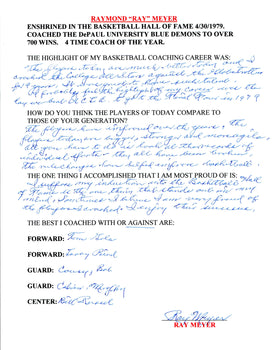 RAYMOND "RAY" MEYER
ENSHRINED IN THE BASKETBALL HALL OF FAME 4/30/1979.
COACHED THE DePAUL UNIVERSITY BLUE DEMONS TO OVER
700 WINS. 4 TIME COACH OF THE YEAR.
THE HIGHLIGHT OF MY BASKETBALL COACHING CAREER WAS:
The players today are much better today and I
coached the College All Stars against the Globetrotters
for years. It
the highlight of my career was the
day we
HOW DO YOU THINK THE PLAYERS OF TODAY COMPARE TO
THOSE OF YOUR GENERATION?
The players have improved over the years. The
players today are bigger, stronger and more agile.
all you have to do is look at the records of
they all have been broken.
The rule changes have helped improve basketball.
THE ONE THING I ACCOMPLISHED THAT I AM MOST PROUD OF IS:
I suppose my induction into the Basketball Hall
of Fame is the one thing that stands out in my
mind. Sometimes I believe I am very proud of
the players I coached. I enjoy their success.
THE BEST I COACHED WITH OR AGAINST ARE:
FORWARD: Tom Gola
FORWARD:
GUARD: Cousy, Bob
GUARD: Calvin Murphy
CENTER: Bill Russell
Ray Meyer
RAY MEYER